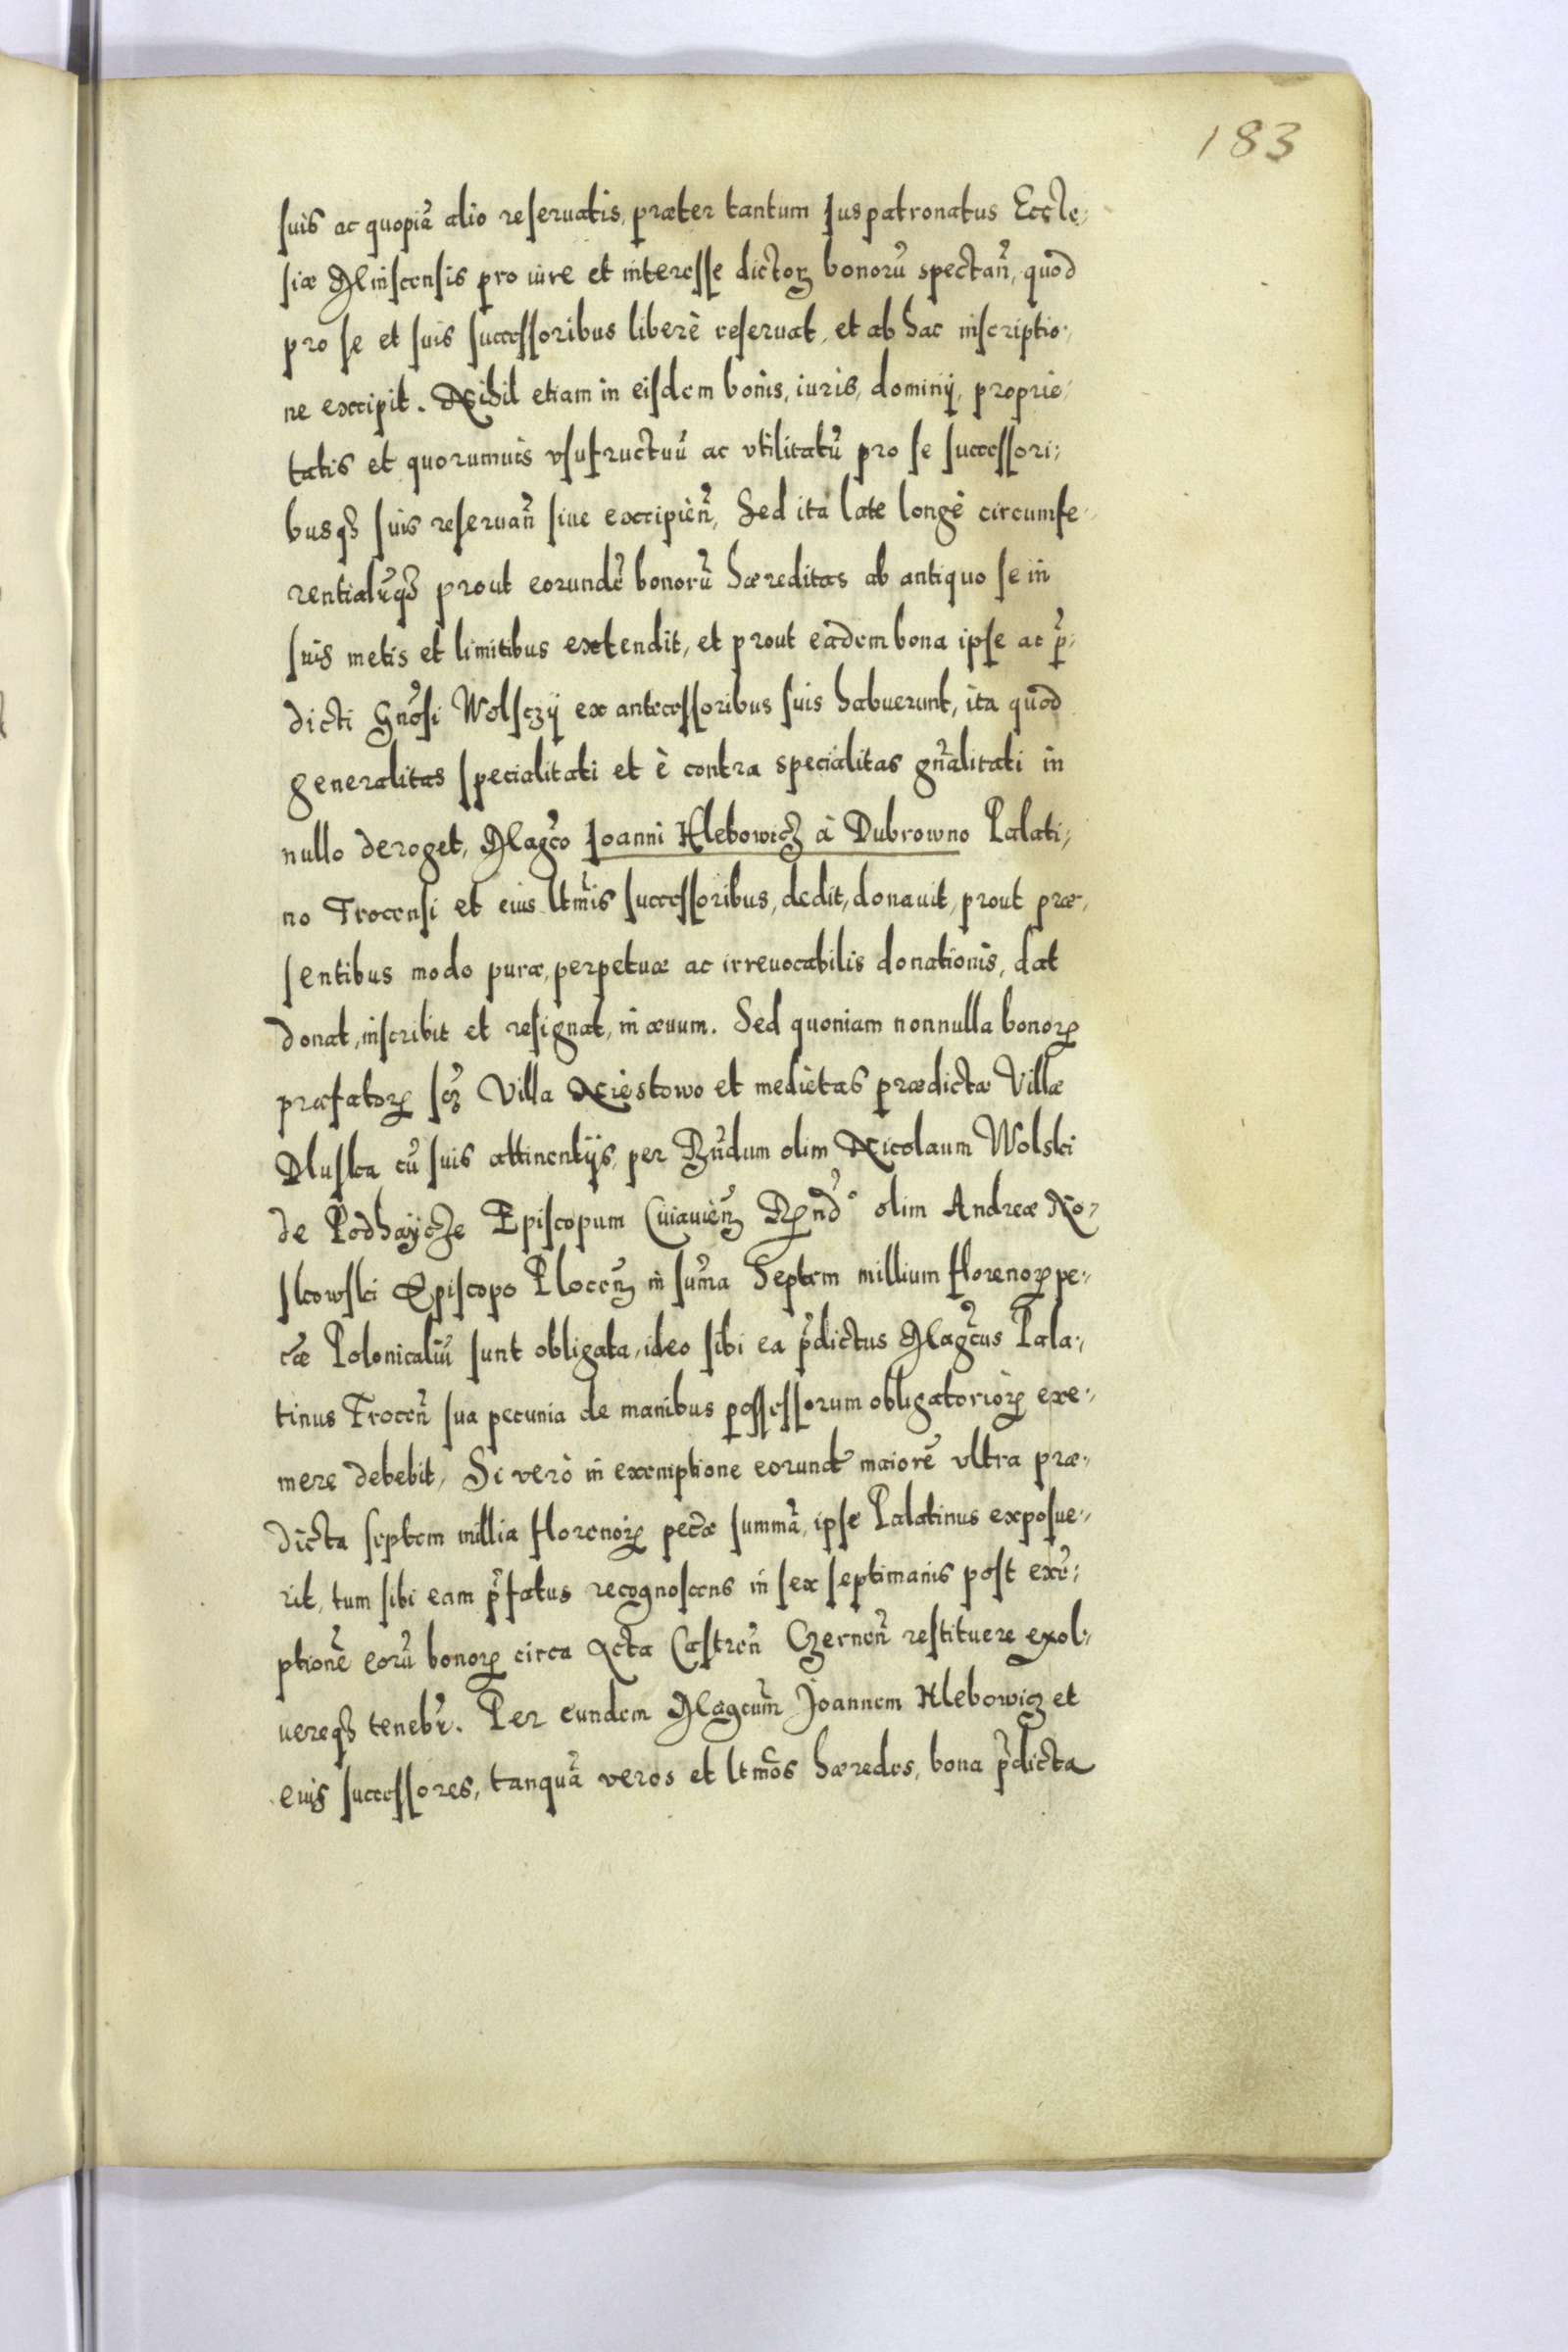 183
suis ac quopiã alio reseruatis, præter tantum Iuspatronatus Eccle,
siæ Mlinscensis pro iure et interesse dictoꝝ bonorũ spectañ, quod
pro se et suis successoribus liberè reseruat, et ab hac inscriptio,
ne excipit. Nihil etiam in eisdem bonis, iuris, dominij, proprie,
tatis et quorumuis vsufructuũ ac vtilitatũ pro se successori;
busqȝ suis reseruañ siue excipieñ, Sed ita late longè circumfe,
rentialr̃qȝ prout eorundẽ bonorũ hæreditas ab antiquo se in
suis metis et limitibus extendit, et prout eadem bona ipse ac p̃,
dicti Gñosi Wolsczij ex antecessoribus suis habuerunt, ita quod
generalitas specialitati et è contra specialitas gñalitati in
nullo deroget, Magc̃o Joanni Hlebowicz à Dubrowno Palati,
no Trocensi et eius ltm̃is successoribus, dedit, donauit, prout præ,
sentibus modo puræ, perpetuæ ac irreuocabilis donationis, dat
donat, inscribit et resignat, in æuum. Sed quoniam nonnulla bonoꝝ
præfatoꝝ scȝ Villa Niestowo et medietas prædictæ Villæ
Dluska cũ suis attinentijs, per Rñdum olim Nicolaum Wolski
de Podhaycze Episcopum Cuiauieñ Rñdo olim Andreæ No,
skowski Episcopo Ploceñ in sum̃a Septem millium florenoꝝ pe,
cũæ Polonicaliũ sunt obligata, ideo sibi ea p̃dictus Magc̃us Pala,
tinus Troceñ sua pecunia de manibus possessorum obligatorioꝝ exe,
mere debebit, Si verò in exemptione eorundẽ maiorẽ vltra præ,
dicta septem millia florenoꝝ pecũæ summã, ipse Palatinus exposue,
rit, tum sibi eam p̃fatus recognoscens in sex septimanis post exẽ,
ptionẽ eorũ bonoꝝ circa Acta Castreñ Czerneñ restituere exol,
uereqȝ tenebr̃. Per eundem Magcum̃ Joannem Hlebowicz et
eius successores, tanquã veros et ltmõs hæredes, bona p̃dicta